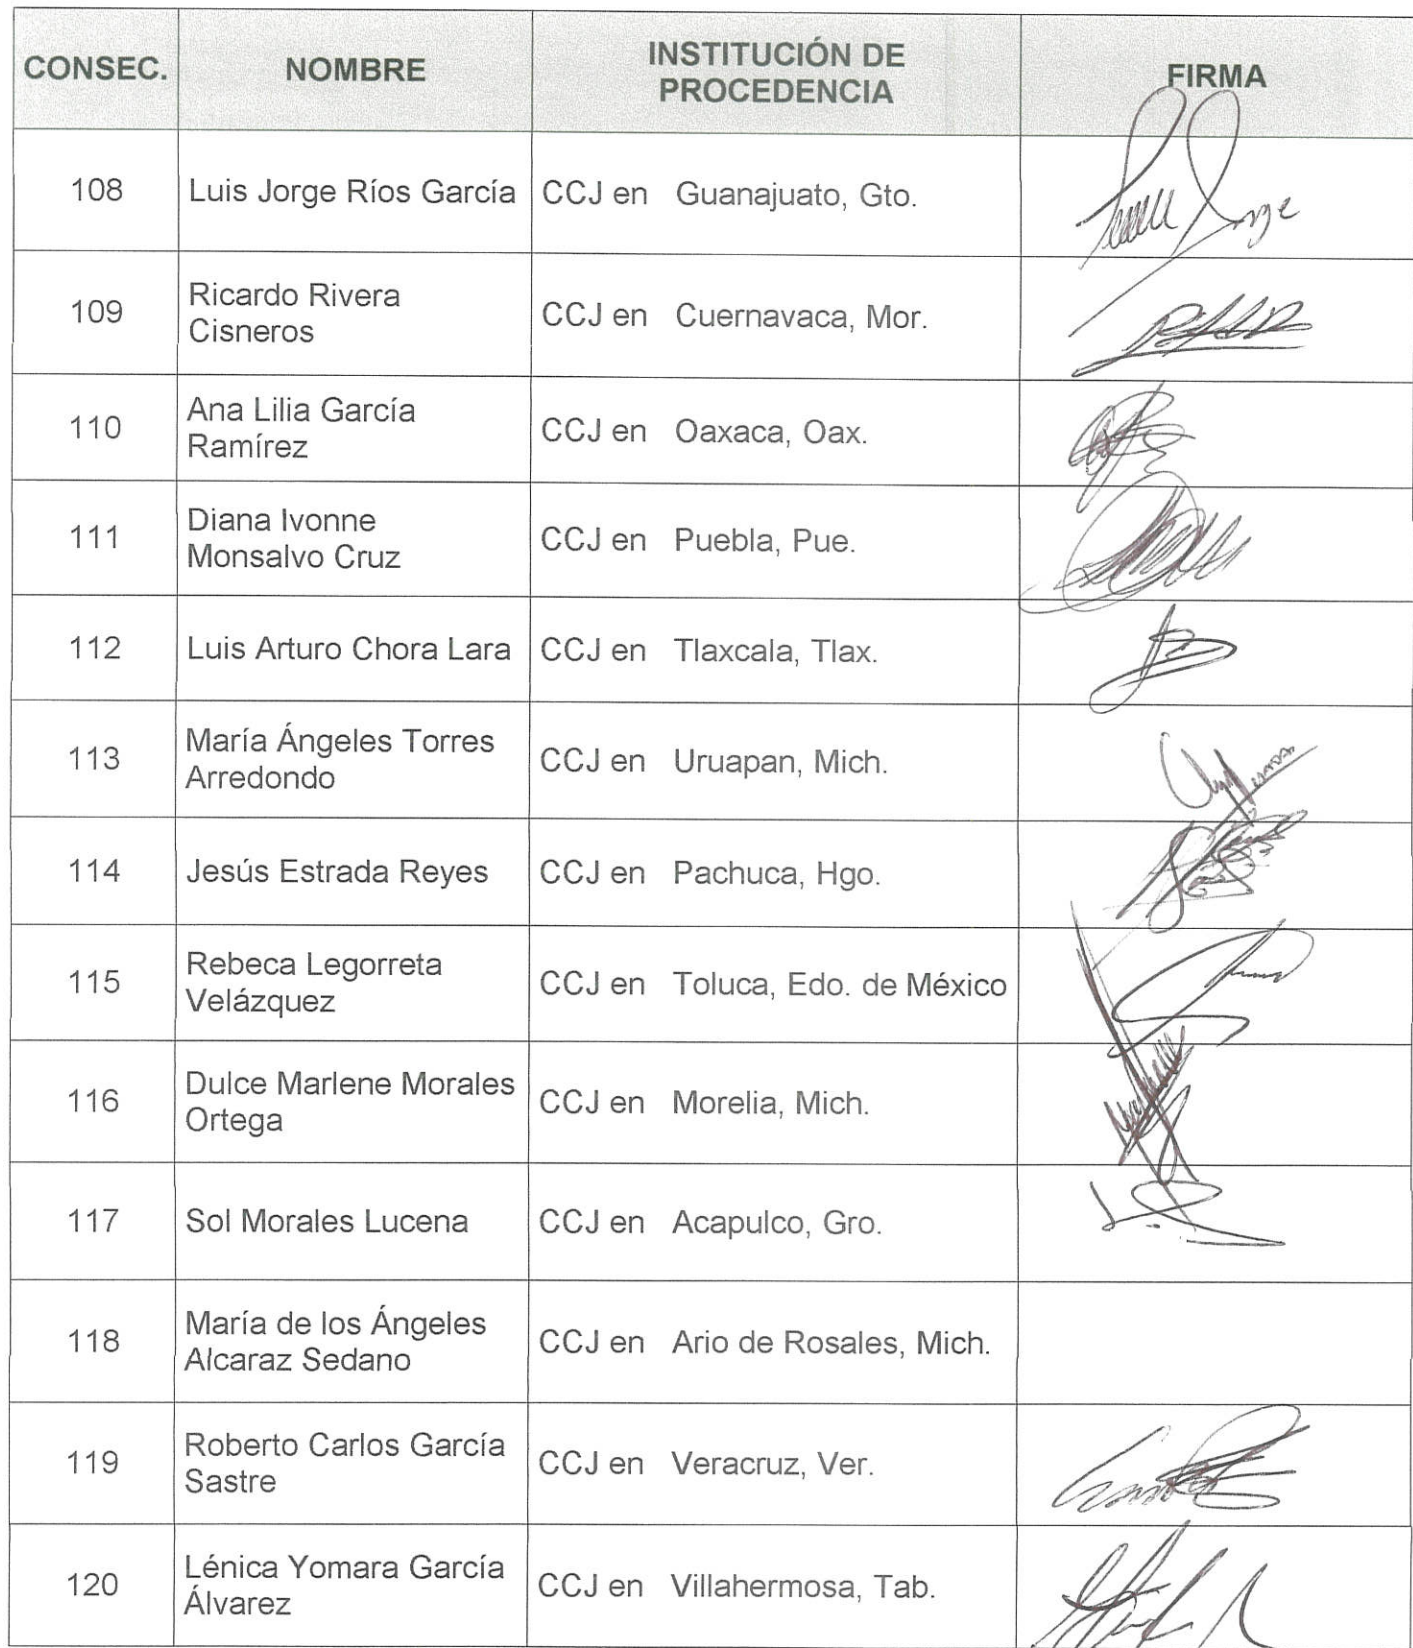 CONSEC. NOMBRE INSTITUCIÓN DE
PROCEDENCIA FIRMA
108 Luis Jorge Ríos García CCJ en Guanajuato, Gto.
109 Ricardo Rivera
Cisneros CCJ en Cuernavaca, Mor.
110 Ana Lilia García
Ramírez CCJ en Oaxaca, Oax.
111 Diana Ivonne
Monsalvo Cruz CCJ en Puebla, Pue.
112 Luis Arturo Chora Lara CCJ en Tlaxcala, Tlax.
113 María Ángeles Torres
Arredondo CCJ en Uruapan, Mich.
114 Jesús Estrada Reyes CCJ en Pachuca, Hgo.
115 Rebeca Legorreta
Velázquez CCJ en Toluca, Edo. de México
116 Dulce Marlene Morales
Ortega CCJ en Morelia, Mich.
117 Sol Morales Lucena CCJ en Acapulco, Gro.
118 María de los Ángeles
Alcaraz Sedano CCJ en Ario de Rosales, Mich.
119 Roberto Carlos García
Sastre CCJ en Veracruz, Ver.
120 Lénica Yomara García
Álvarez CCJ en Villahermosa, Tab.